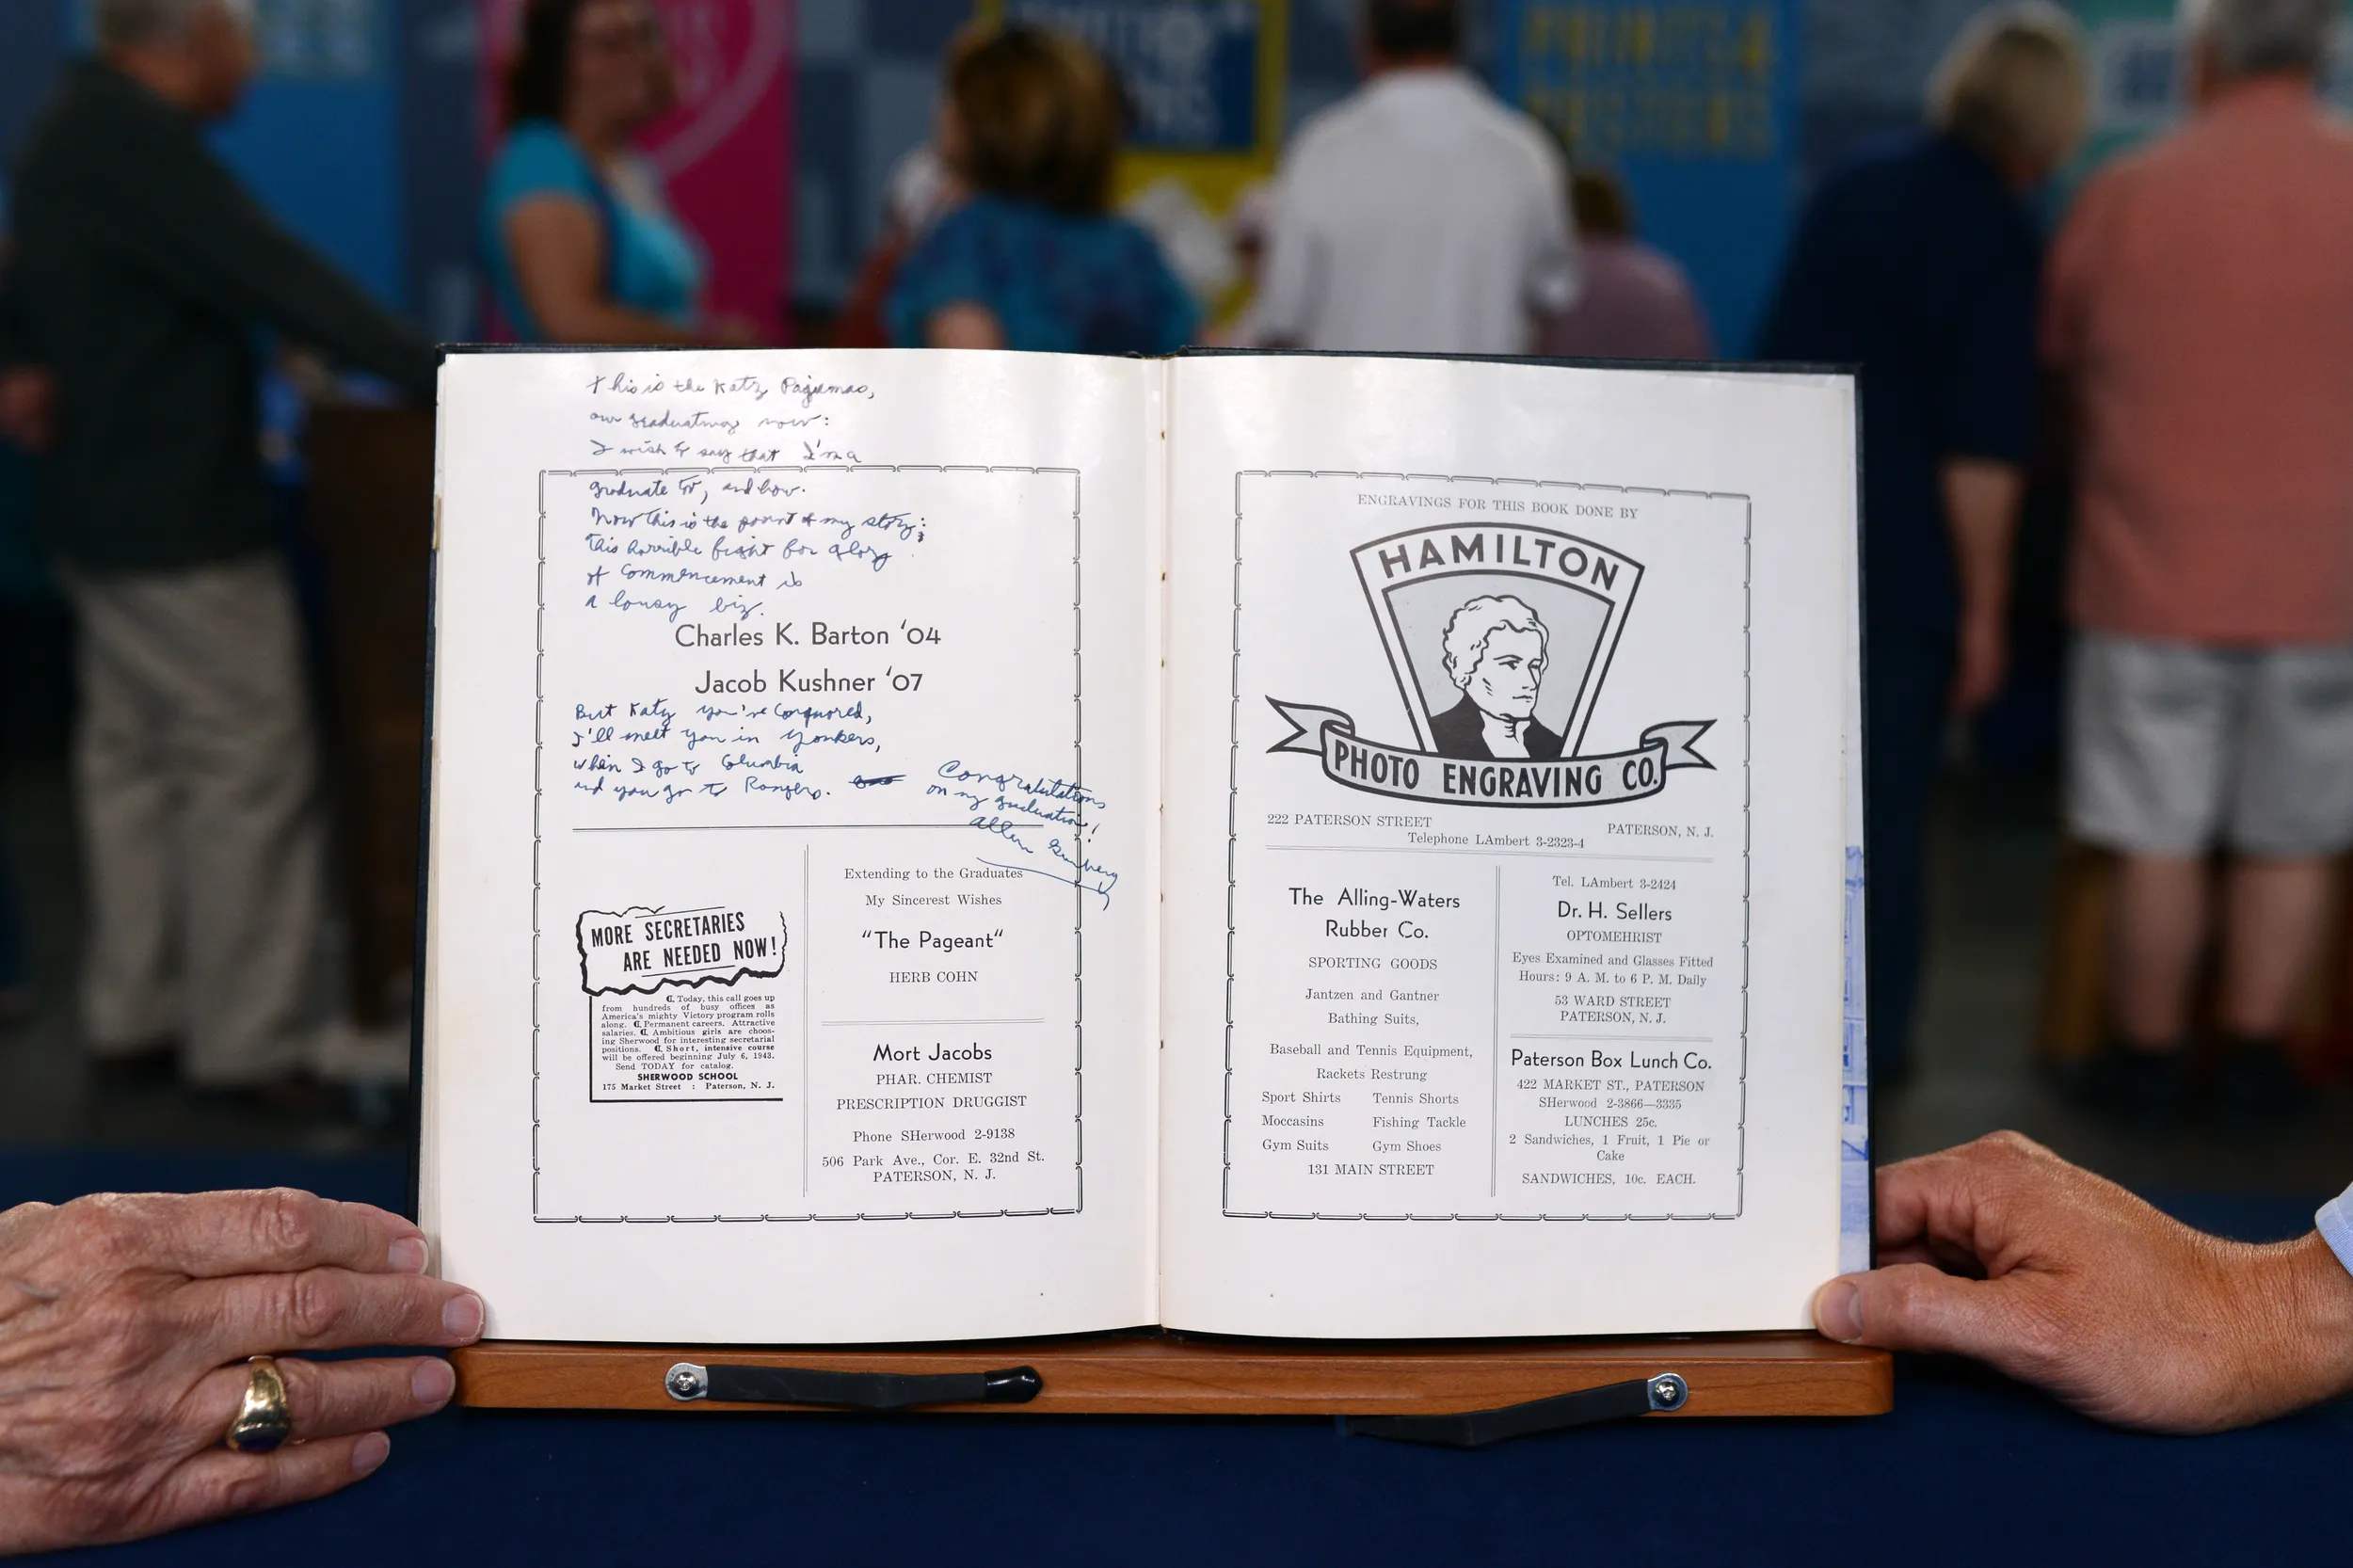 This is the Katz Pajamas,
our graduating now:
I wish to say that I'm a
graduate too, and how.
Now this is the point of my story:
this horrible fight for glory
of Commencement is
a lousy biz.
Charles K. Barton '04
Jacob Kushner '07
But Katz you've conquored,
I'll meet you in Yonkers,
when I go to Columbia
and you go to Rongers.
Congratulations
on my graduation!
Allen Ginsberg
MORE SECRETARIES
ARE NEEDED NOW!
₵ Today, this call goes up
from hundreds of busy offices as
America's mighty Victory program rolls
along. ₵ Permanent careers. Attractive
salaries. ₵ Ambitious girls are choos-
ing Sherwood for interesting secretarial
positions. ₵ Short, intensive course
will be offered beginning July 6, 1943.
Send TODAY for catalog.
SHERWOOD SCHOOL
175 Market Street : Paterson, N. J.
Extending to the Graduates
My Sincerest Wishes
"The Pageant"
HERB COHN
Mort Jacobs
PHAR. CHEMIST
PRESCRIPTION DRUGGIST
Phone SHerwood 2-9138
506 Park Ave., Cor. E. 32nd St.
PATERSON, N. J.
ENGRAVINGS FOR THIS BOOK DONE BY
HAMILTON
PHOTO ENGRAVING CO.
222 PATERSON STREET PATERSON, N. J.
Telephone LAmbert 3-2323-4
The Alling-Waters
Rubber Co.
SPORTING GOODS
Jantzen and Gantner
Bathing Suits,
Baseball and Tennis Equipment,
Rackets Restrung
Sport Shirts Tennis Shorts
Moccasins Fishing Tackle
Gym Suits Gym Shoes
131 MAIN STREET
Tel. LAmbert 3-2424
Dr. H. Sellers
OPTOMEHRIST
Eyes Examined and Glasses Fitted
Hours: 9 A. M. to 6 P. M. Daily
53 WARD STREET
PATERSON, N. J.
Paterson Box Lunch Co.
422 MARKET ST., PATERSON
SHerwood 2-3866—3335
LUNCHES 25c.
2 Sandwiches, 1 Fruit, 1 Pie or
Cake
SANDWICHES, 10c. EACH.